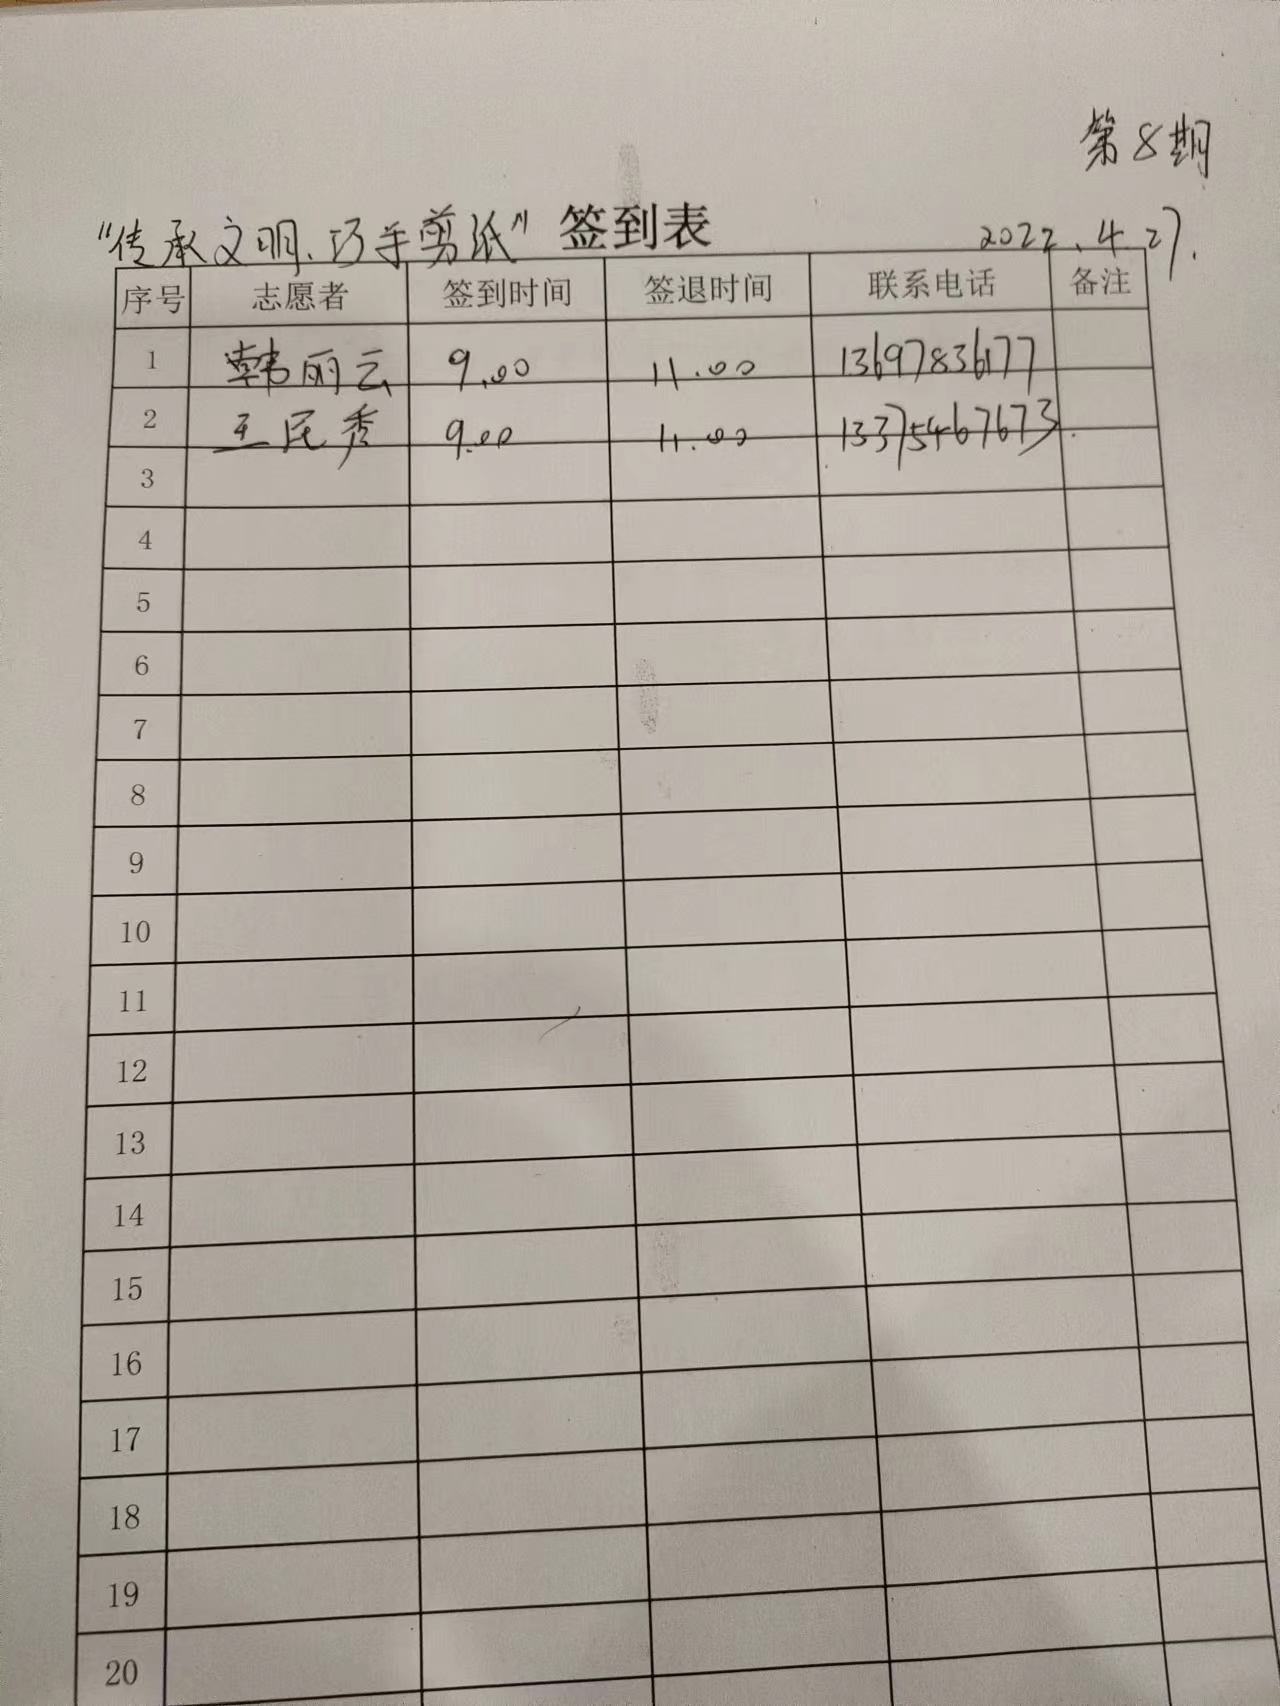 第8期
"传承文明、巧手剪纸" 签到表 2022.4.27.
序号 志愿者 签到时间 签退时间 联系电话 备注
1 韩丽云 9.00 11.00 13697836177
2 王民秀 9.00 11.00 13375467673.
3
4
5
6
7
8
9
10
11
12
13
14
15
16
17
18
19
20